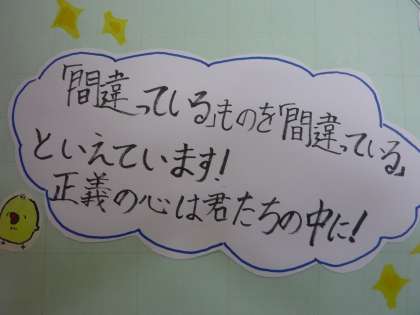 「間違っている」ものを「間違っている」
といえています!
正義の心は君たちの中に!